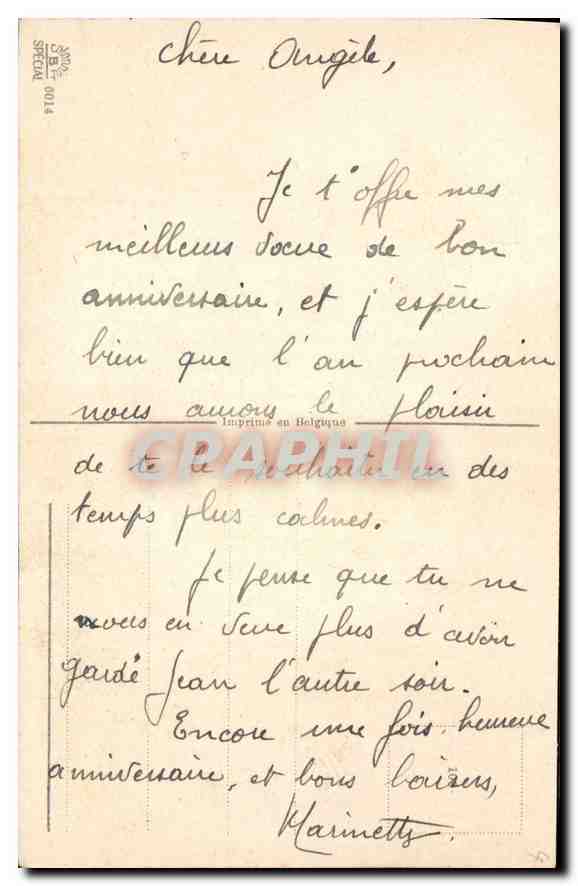 JBF
SPÉCIAL 0014
Chère Angèle,
Je t'offre mes
meilleurs voeux de bon
anniversaire, et j'espère
bien que l'an prochain
nous aurons le plaisir
Imprimé en Belgique
CPAPHIL
de te le souhaiter en des
temps plus calmes.
Je pense que tu ne
nous en veux plus d'avoir
gardé Jean l'autre soir.
Encore une fois, heureux
anniversaire, et bons baisers,